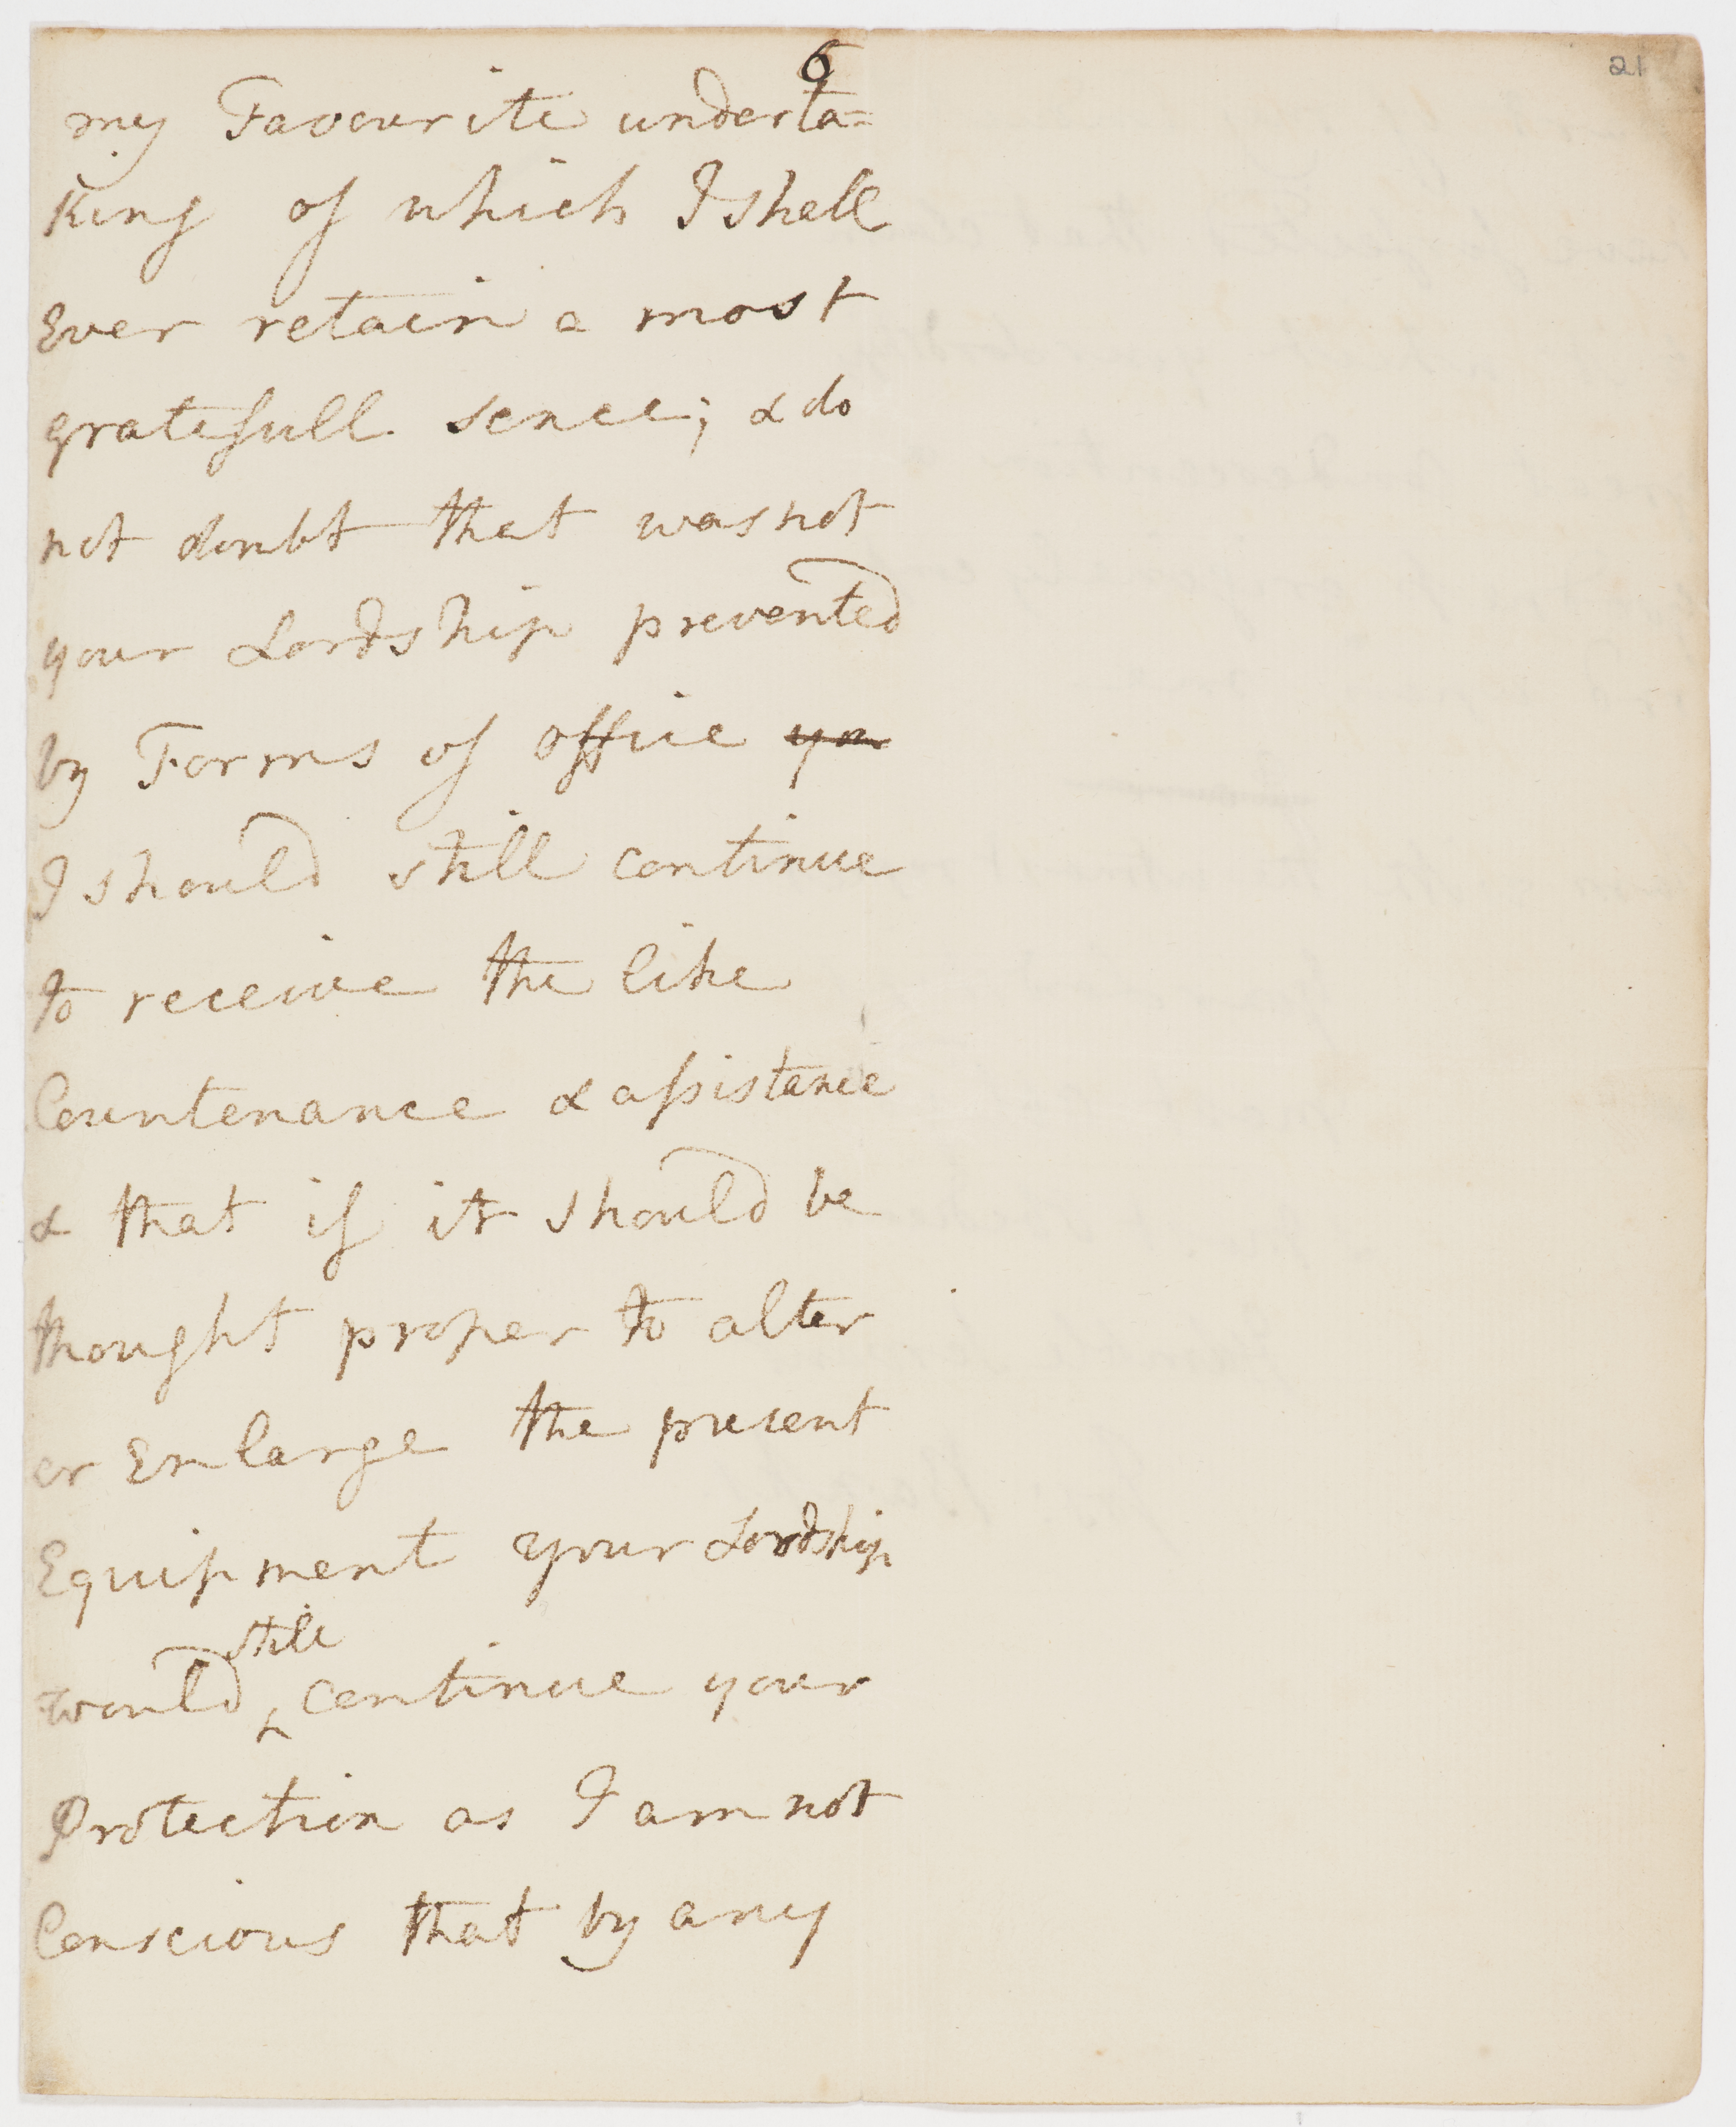 6
21
my Favourite underta=
King of which I shall
Ever retain a most
gratefull sence; & do
not doubt that was not
your Lordship prevented
by Forms of office you
I should still continue
to receive the like
Countenance & assistance
& that if it should be
thought proper to alter
or Enlarge the present
Equipment your Lordship
still
would continue your
Protection as I am not
Conscious that by any